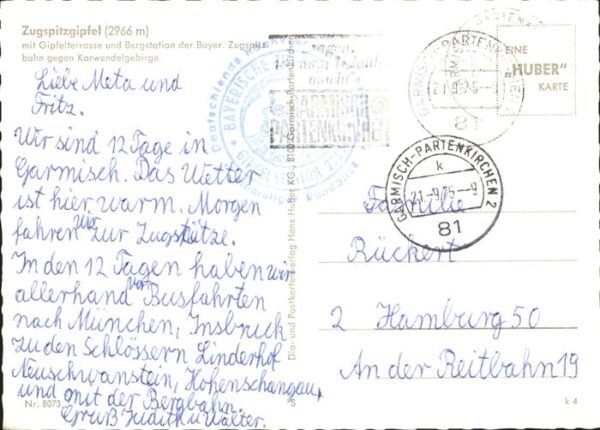 Zugspitzgipfel (2966 m)
mit Gipfelterrasse und Bergstation der Bayer. Zugspitz-
bahn gegen Karwendelgebirge
Liebe Meta und
Fritz.
Wir sind 12 Tage in
Garmisch. Das Wetter
ist hier warm. Morgen
fahren wir zur Zugspitze.
In den 12 Tagen haben wir
allerhand vor Busfahrten
nach München, Insbruck
zu den Schlössern Linderhof
Neuschwanstein, Hohenschangau,
und mit der Bergbahn.
Gruß Judith u Walter.
Nr. 8073
Dia- und Postkartenverlag Hans Huber KG, 8100 Garmisch-Partenkirchen
BAYERISCHE
GARMISCH
PARTENKIRCHEN
GARMISCH-PARTENKIRCHEN 2
21.-9.75-9
81
EINE
„HUBER"
KARTE
GARMISCH-PARTENKIRCHEN 2
k
21.-9.75-9
81
Familie
Rückert
2 Hamburg 50
An der Reitbahn 19
k 4